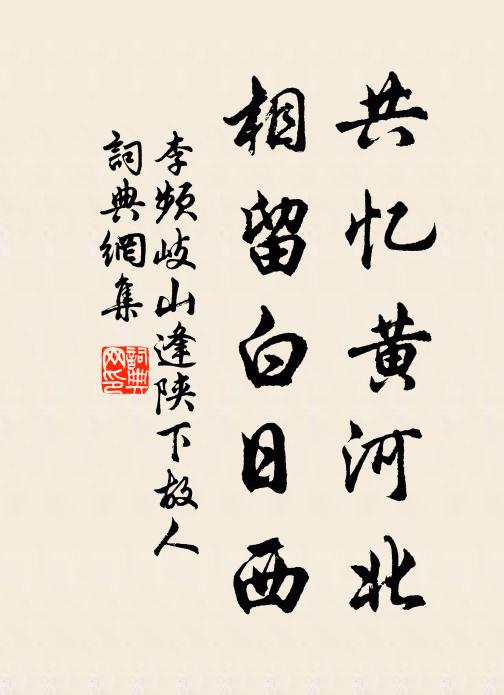 共忆黄河北
相留白日西
李频岐山逢陕下故人
詞典網集
詞典网印